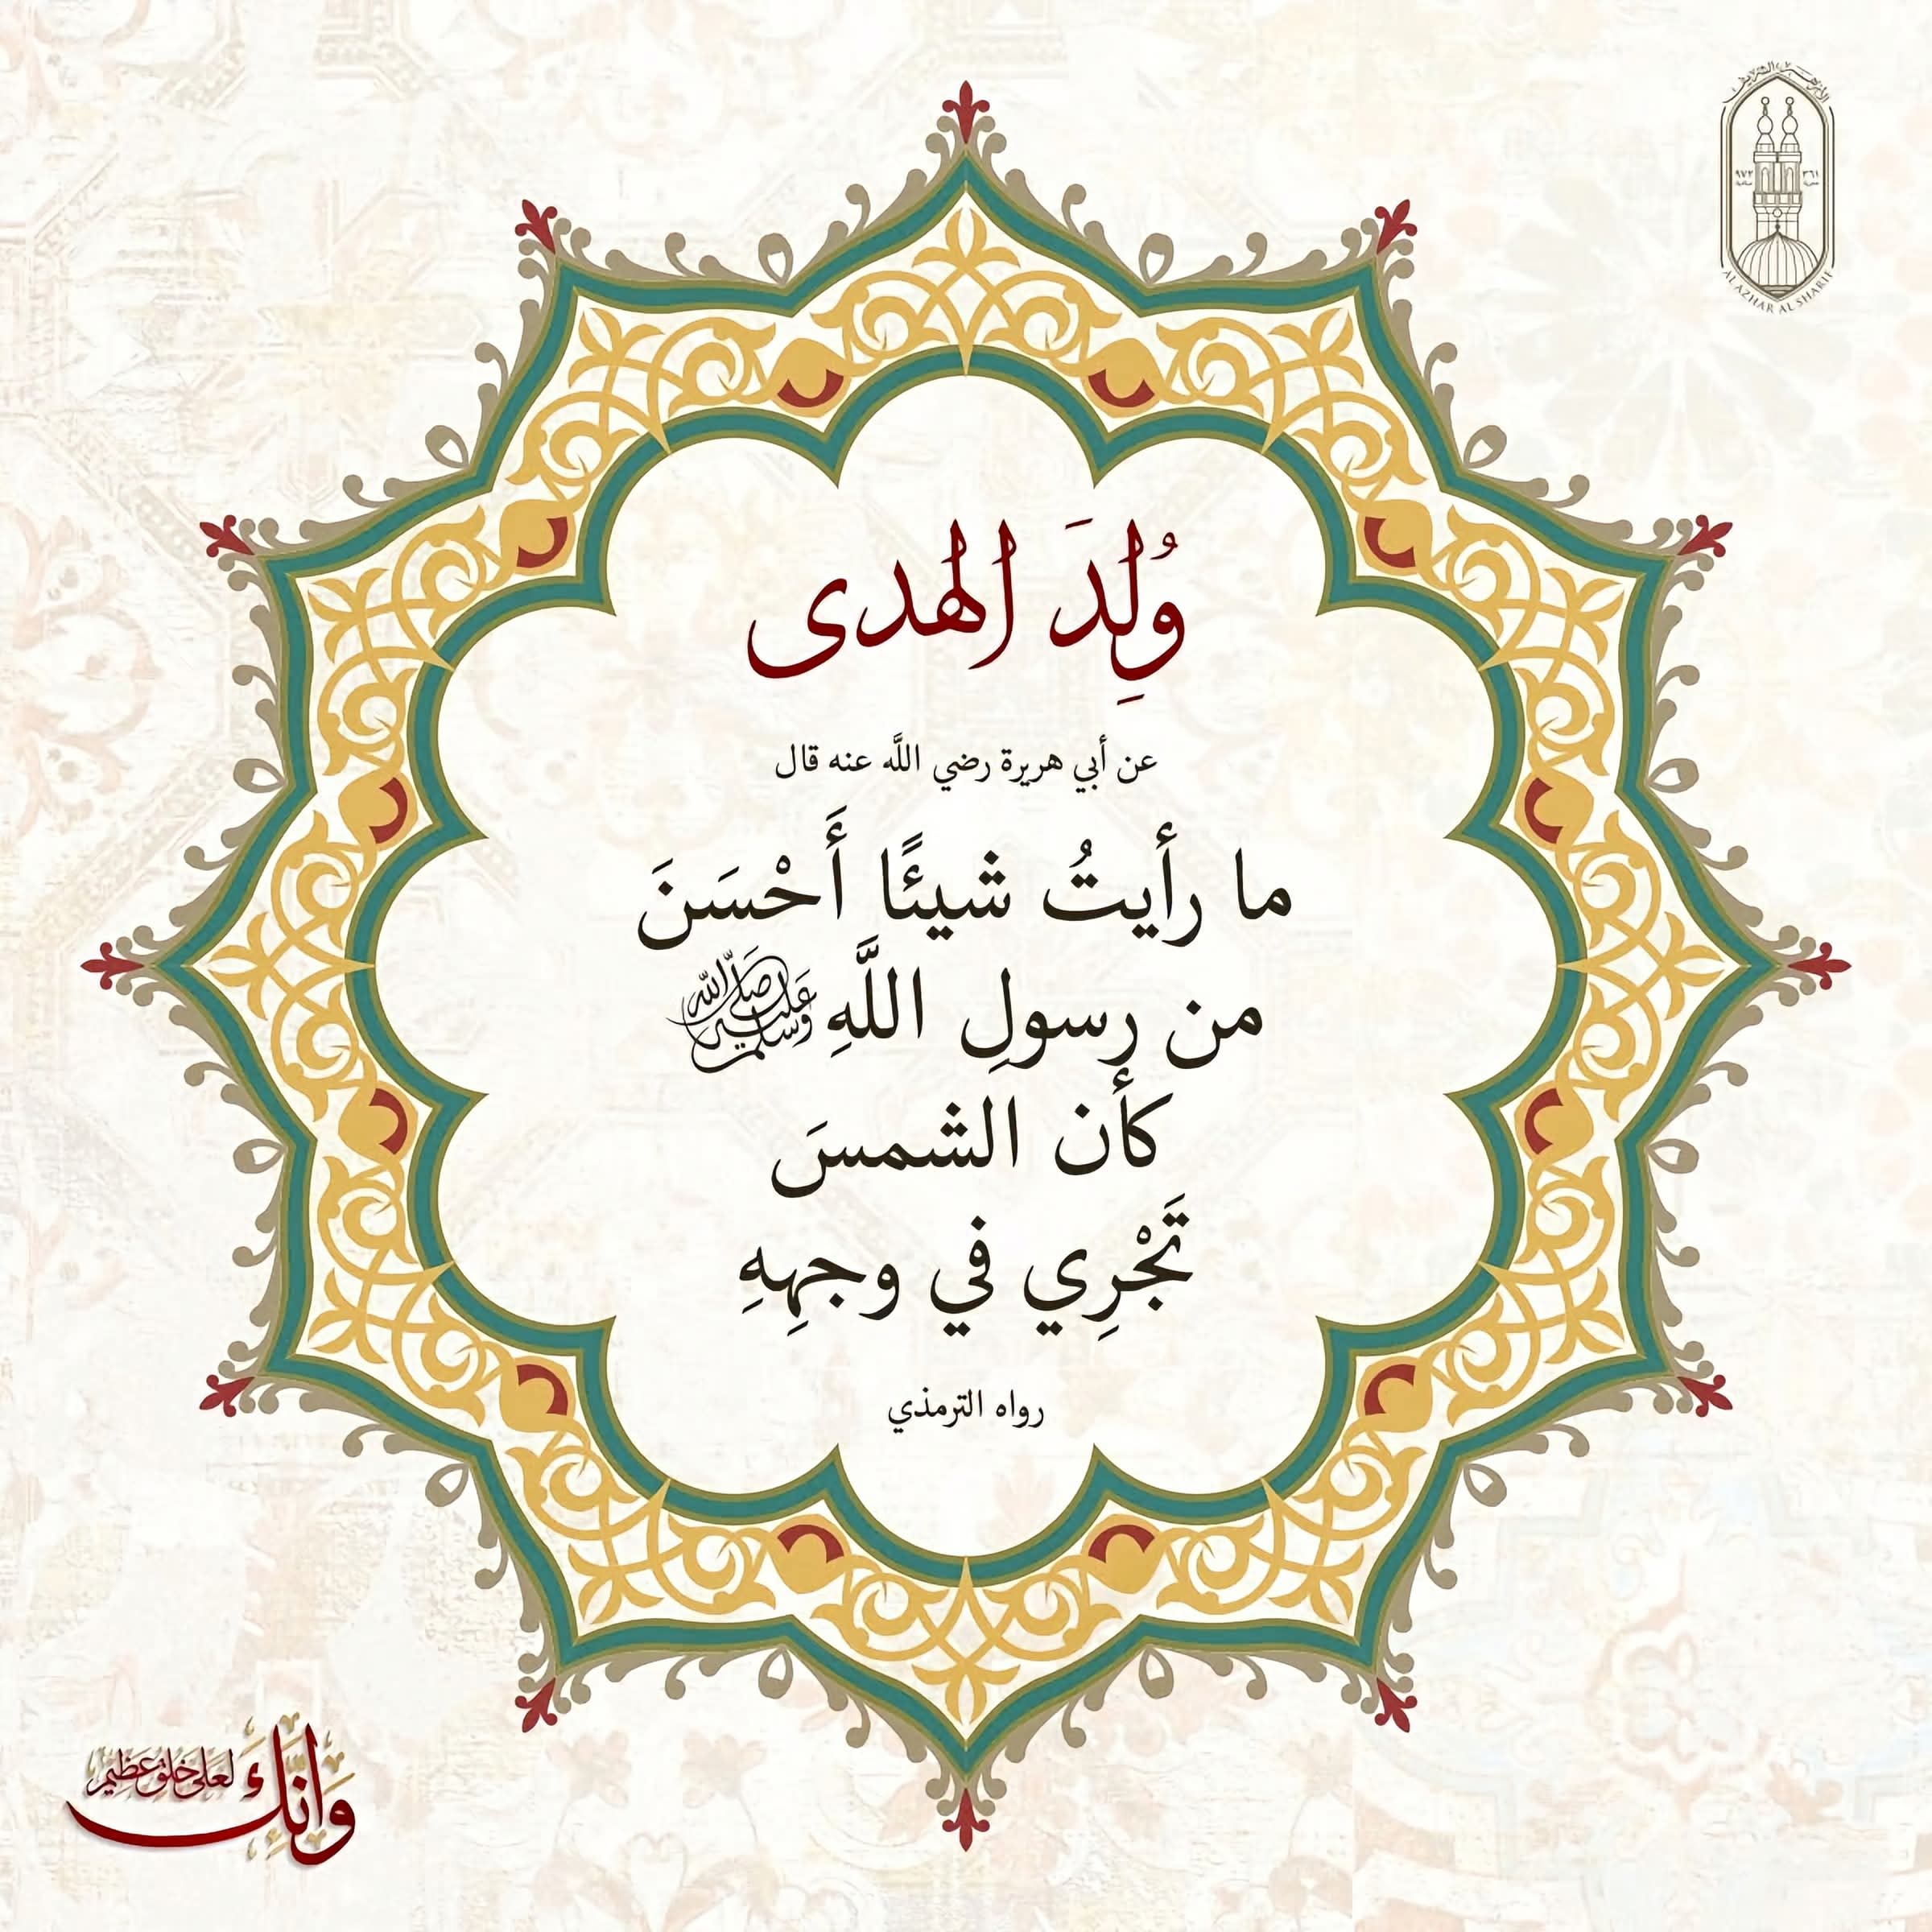 الأزهر الشريف
٩٧٢ ٣٦١
ميلادية هجرية
AL AZHAR AL SHARIF
وُلِدَ الهدى
عن أبي هريرة رضي اللَّه عنه قال
ما رأيتُ شيئًا أَحْسَنَ
من رسولِ اللَّهِ ﷺ
كأن الشمسَ
تَجْرِي في وجهِهِ
رواه الترمذي
وَإِنَّكَ لَعَلى خُلُقٍ عَظِيمٍ